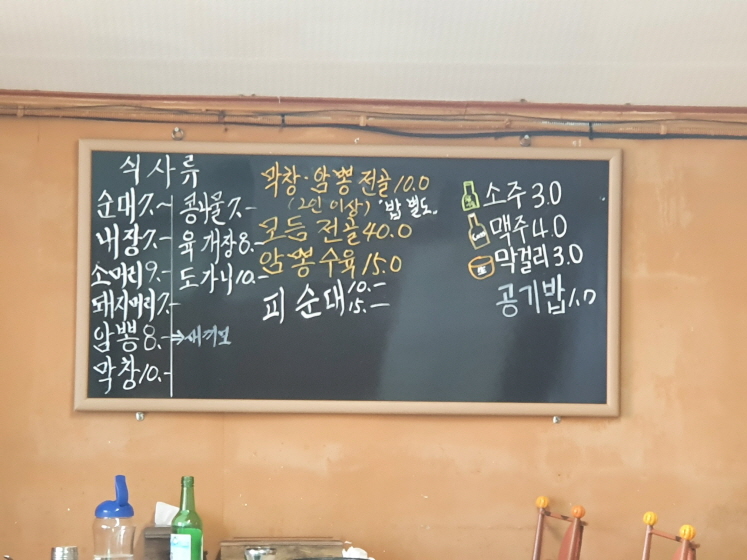 식사류
순대 7.-
내장 7.-
소머리 9.-
돼지머리 7.-
암뽕 8.- → 새끼보
막창 10.-
콩나물 7.-
육개장 8.-
도가니 10.-
막창·암뽕전골 10.0
(2인 이상) "밥 별도"
모듬 전골 40.0
암뽕수육 15.0
피순대 10.-
15.-
소주 3.0
맥주 4.0
막걸리 3.0
공기밥 1.0